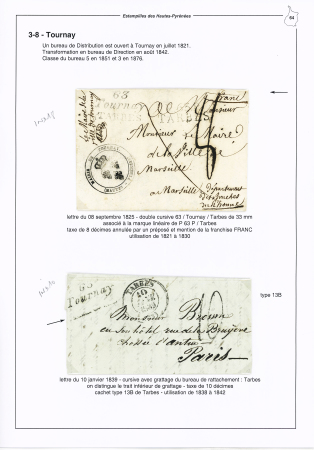 Estampilles des Hautes-Pyrénées
64
3-8 - Tournay
Un bureau de Distribution est ouvert à Tournay en juillet 1821.
Transformation en bureau de Direction en août 1842.
Classe du bureau 5 en 1851 et 3 en 1876.
63
Tournay
TARBES
TARBES
franc
Monsieur le Maire
de la Ville de
Marseille
à Marseille
département
lettre du 08 septembre 1825 - double cursive 63 / Tournay / Tarbes de 33 mm
associé à la marque linéaire de P 63 P / Tarbes
taxe de 8 décimes annulée par un préposé et mention de la franchise FRANC
utilisation de 1821 à 1830
type 13B
63
Tournay
TARBES
10
1839
Monsieur Brown
en son hôtel rue de la
Paris
lettre du 10 janvier 1839 - cursive avec grattage du bureau de rattachement : Tarbes
on distingue le trait inférieur de grattage - taxe de 10 décimes
cachet type 13B de Tarbes - utilisation de 1838 à 1842